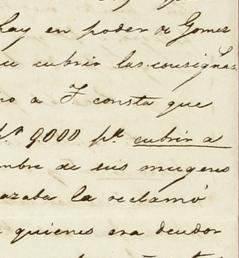 hay en poder de Gomez
cubrir las consignas
a F consta que
9.000 ps. cubrir a
mbre de sus mugeres
azaba la reclamó
quienes era deudor